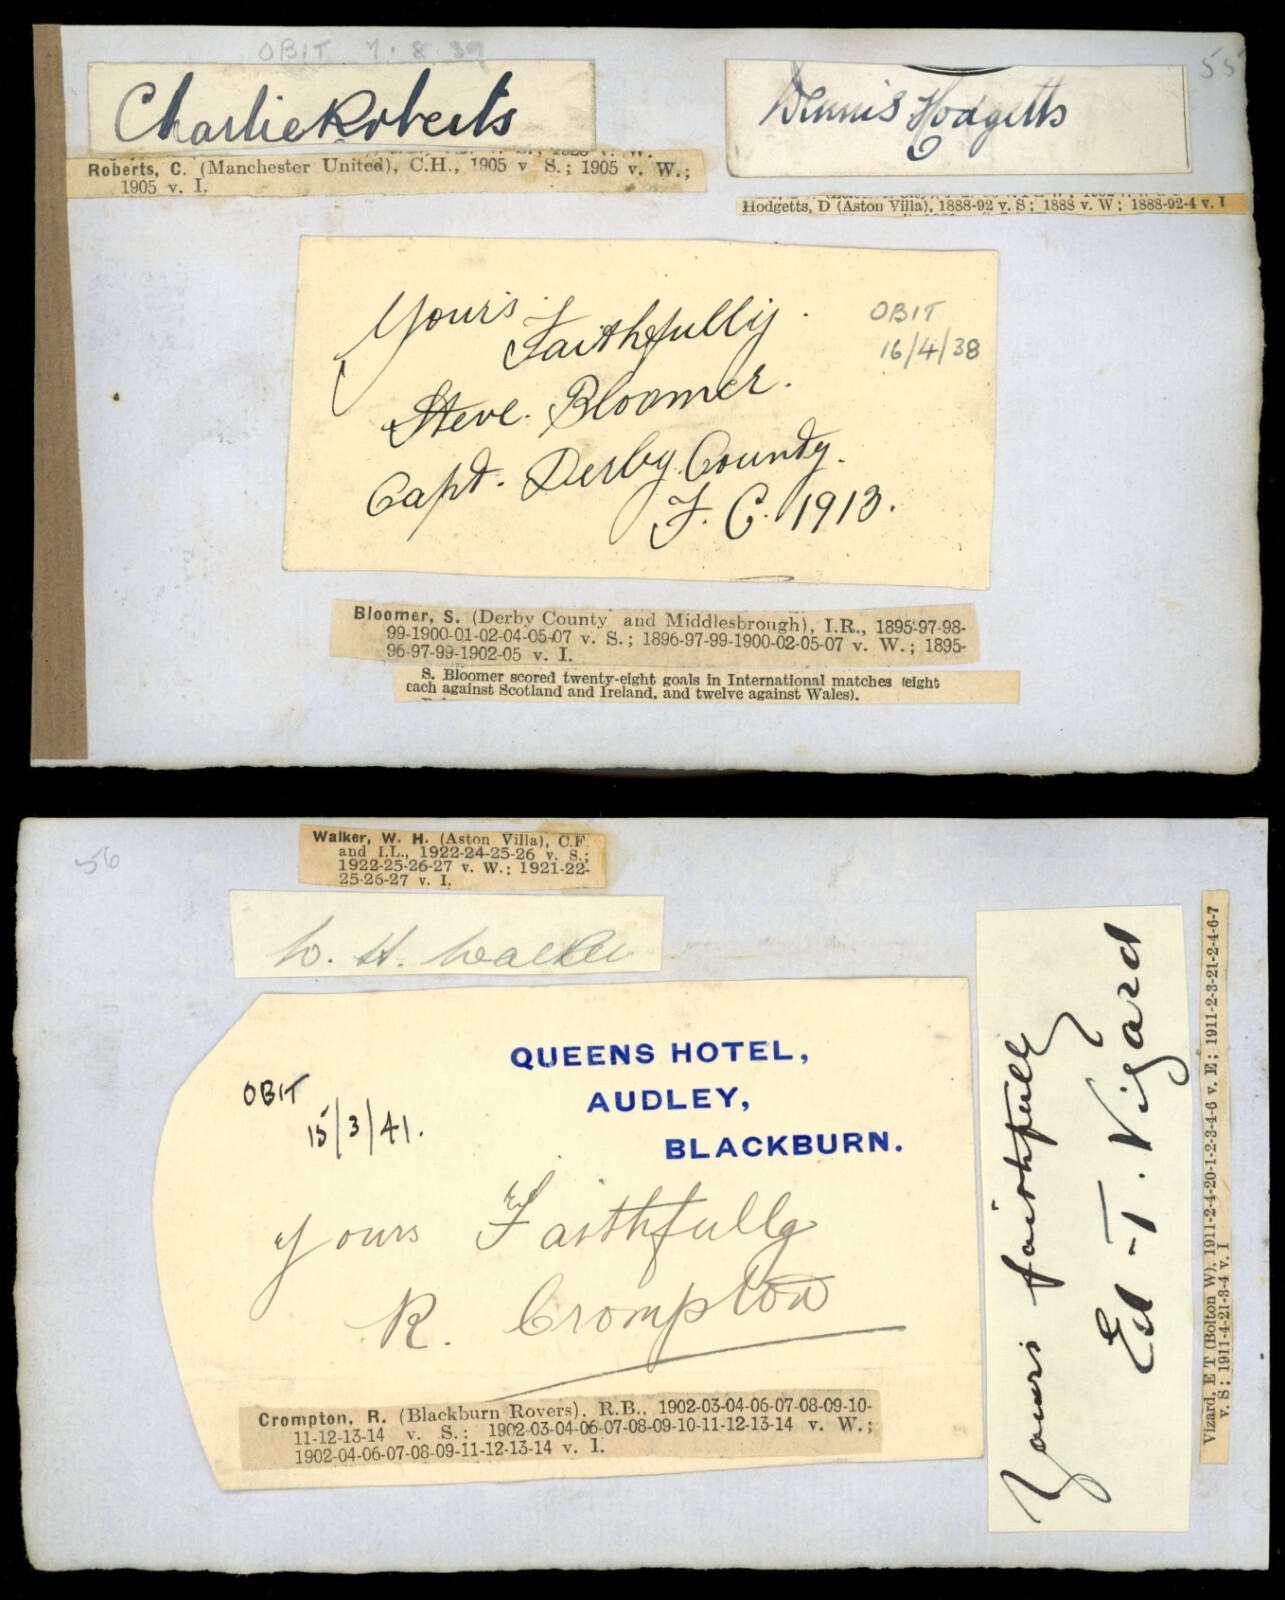 OBIT 7.8.39
55
Charlie Roberts
Roberts, C. (Manchester United), C.H., 1905 v S.; 1905 v. W.;
1905 v. I.
Dennis Hodgetts
Hodgetts, D (Aston Villa), 1888-92 v. S; 1888 v. W; 1888-92-4 v. I
Yours Faithfully.
Steve. Bloomer.
Capt. Derby County.
F. C. 1913.
OBIT
16/4/38
Bloomer, S. (Derby County and Middlesbrough), I.R., 1895-97-98-
99-1900-01-02-04-05-07 v. S.; 1896-97-99-1900-02-05-07 v. W.; 1895-
96-97-99-1902-05 v. I.
S. Bloomer scored twenty-eight goals in International matches (eight
each against Scotland and Ireland, and twelve against Wales).
56
Walker, W. H. (Aston Villa), C.F.
and I.L., 1922-24-25-26 v. S.;
1922-25-26-27 v. W.; 1921-22-
25-26-27 v. I.
W. H. Walker
QUEENS HOTEL,
AUDLEY,
BLACKBURN.
OBIT
15/3/41.
Yours Faithfully
R. Crompton
Crompton, R. (Blackburn Rovers), R.B., 1902-03-04-06-07-08-09-10-
11-12-13-14 v. S.; 1902-03-04-06-07-08-09-10-11-12-13-14 v. W.;
1902-04-06-07-08-09-11-12-13-14 v. I.
Yours faithfully
Ed. T. Vizard
Vizard, E T (Bolton W), 1911-2-4-20-1-2-3-4-6 v. E; 1911-2-3-21-2-4-6-7
v. S; 1911-4-21-3-4 v. I